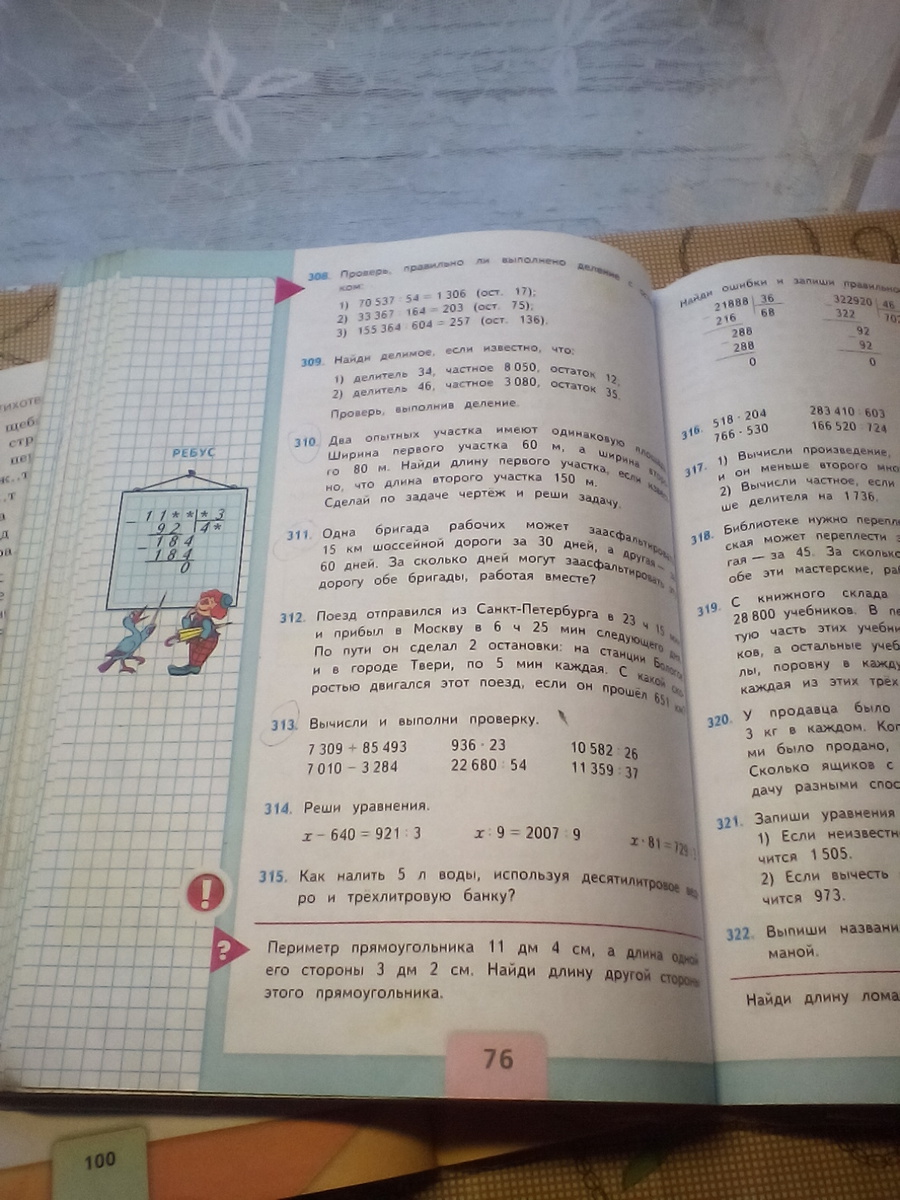 308. Проверь, правильно ли выполнено деление с
ком:
1) 70 537 : 54 = 1 306 (ост. 17);
2) 33 367 : 164 = 203 (ост. 75);
3) 155 364 : 604 = 257 (ост. 136).
309. Найди делимое, если известно, что:
1) делитель 34, частное 8 050, остаток 12,
2) делитель 46, частное 3 080, остаток 35.
Проверь, выполнив деление.
310. Два опытных участка имеют одинаковую
Ширина первого участка 60 м, а ширина
го 80 м. Найди длину первого участка, если
но, что длина второго участка 150 м.
Сделай по задаче чертёж и реши задачу.
311. Одна бригада рабочих может заасфальтировать
15 км шоссейной дороги за 30 дней, а другая —
60 дней. За сколько дней могут заасфальтировать
дорогу обе бригады, работая вместе?
312. Поезд отправился из Санкт-Петербурга в 23 ч 15 мин
и прибыл в Москву в 6 ч 25 мин следующего дня.
По пути он сделал 2 остановки: на станции
и в городе Твери, по 5 мин каждая. С какой ско-
ростью двигался этот поезд, если он прошёл 651 км?
313. Вычисли и выполни проверку.
7 309 + 85 493 936 · 23 10 582 : 26
7 010 − 3 284 22 680 : 54 11 359 : 37
314. Реши уравнения.
x − 640 = 921 : 3 x : 9 = 2007 : 9 x · 81 = 729
315. Как налить 5 л воды, используя десятилитровое вед
ро и трёхлитровую банку?
!
?
Периметр прямоугольника 11 дм 4 см, а длина одной
его стороны 3 дм 2 см. Найди длину другой стороны
этого прямоугольника.
76
РЕБУС
− 11*** 3
92 4*
− 184
184
0
Найди ошибки и запиши правильно
21888 36
216 68
288
288
0
322920 46
322 702
92
92
0
316. 518 · 204 283 410 : 603
766 · 530 166 520 : 724
317. 1) Вычисли произведение,
и он меньше второго
2) Вычисли частное, если
ше делителя на 1 736.
318. Библиотеке нужно
ская может переплести
гая — за 45. За сколько
обе эти мастерские,
319. С книжного склада
28 800 учебников. В
тую часть этих
ков, а остальные
лы, поровну в
каждая из этих
320. У продавца было
3 кг в каждом.
ми было продано,
Сколько ящиков с
дачу разными
321. Запиши уравнения
1) Если
чится 1 505.
2) Если вычесть
чится 973.
322. Выпиши
маной.
Найди длину
100